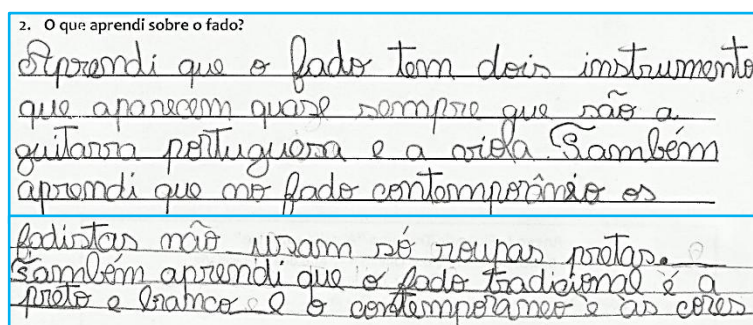 2. O que aprendi sobre o fado?
Aprendi que o fado tem dois instrumento
que aparecem quase sempre que são a
guitarra portuguesa e a viola. Também
aprendi que no fado contemporânio os
fadistas não usam só roupas pretas.
Também aprendi que o fado tradicional é a
preto e branco e o contemporâneo é às cores